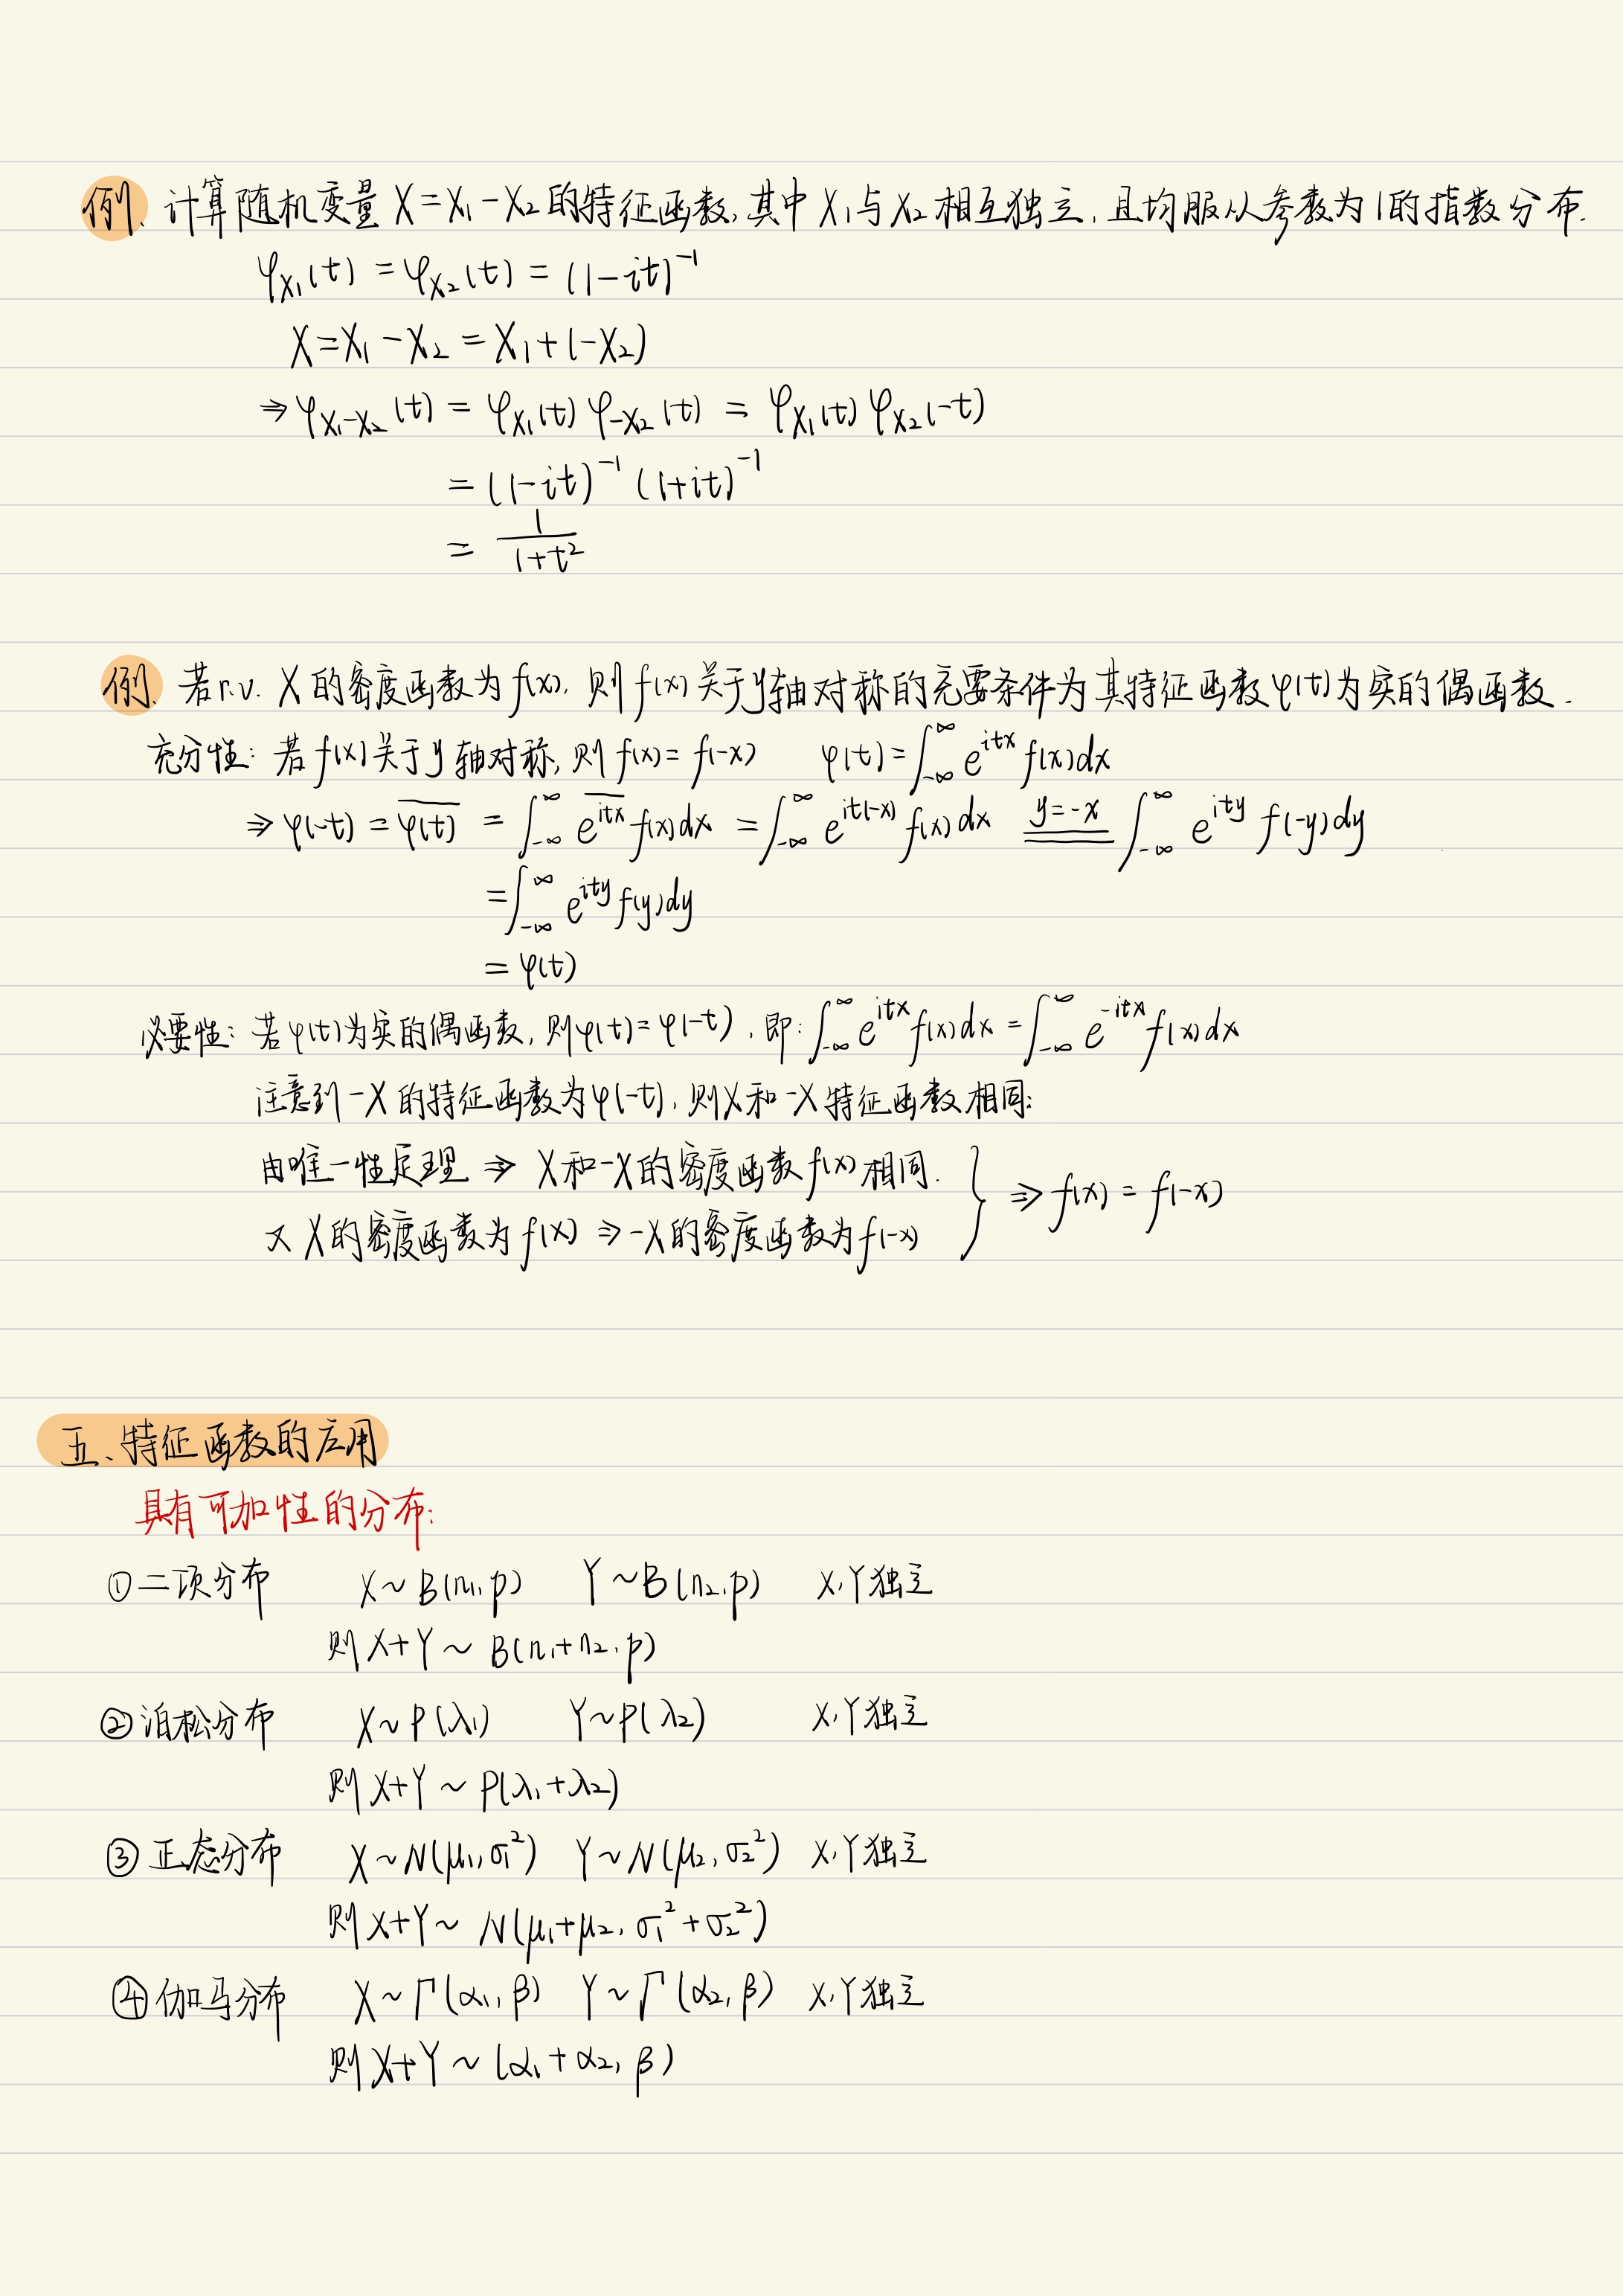 例. 计算随机变量 X=X₁-X₂ 的特征函数, 其中 X₁与 X₂ 相互独立, 且均服从参数为1的指数分布.
φ_{X₁}(t) = φ_{X₂}(t) = (1-it)⁻¹
X=X₁-X₂ = X₁+(-X₂)
⇒ φ_{X₁-X₂}(t) = φ_{X₁}(t) φ_{-X₂}(t) = φ_{X₁}(t) φ_{X₂}(-t)
= (1-it)⁻¹ (1+it)⁻¹
= \frac{1}{1+t²}
例. 若r.v. X 的密度函数为 f(x), 则 f(x) 关于y轴对称的充要条件为其特征函数 φ(t)为实的偶函数.
充分性: 若 f(x) 关于 y 轴对称, 则 f(x) = f(-x) φ(t) = ∫_{-∞}^{∞} e^{itx} f(x)dx
⇒ φ(-t) = \overline{φ(t)} = ∫_{-∞}^{∞} \overline{e^{itx}} f(x)dx = ∫_{-∞}^{∞} e^{it(-x)} f(x)dx \xlongequal{y=-x} ∫_{-∞}^{∞} e^{ity} f(-y)dy
= ∫_{-∞}^{∞} e^{ity} f(y)dy
= φ(t)
必要性: 若 φ(t)为实的偶函数, 则φ(t) = φ(-t), 即: ∫_{-∞}^{∞} e^{itx} f(x)dx = ∫_{-∞}^{∞} e^{-itx} f(x)dx
注意到 -X 的特征函数为φ(-t), 则X和-X特征函数相同;
由唯一性定理 ⇒ X和-X的密度函数f(x)相同. } ⇒ f(x) = f(-x)
又 X的密度函数为 f(x) ⇒ -X的密度函数为f(-x)
五、特征函数的应用
具有可加性的分布:
① 二项分布 X~B(n₁,p) Y~B(n₂,p) X,Y独立
则 X+Y ~ B(n₁+n₂,p)
② 泊松分布 X~P(λ₁) Y~P(λ₂) X,Y独立
则 X+Y ~ P(λ₁+λ₂)
③ 正态分布 X~N(μ₁,σ₁²) Y~N(μ₂,σ₂²) X,Y独立
则 X+Y~ N(μ₁+μ₂, σ₁²+σ₂²)
④ 伽马分布 X~Γ(α₁,β) Y~Γ(α₂,β) X,Y独立
则 X+Y ~ (α₁+α₂, β)